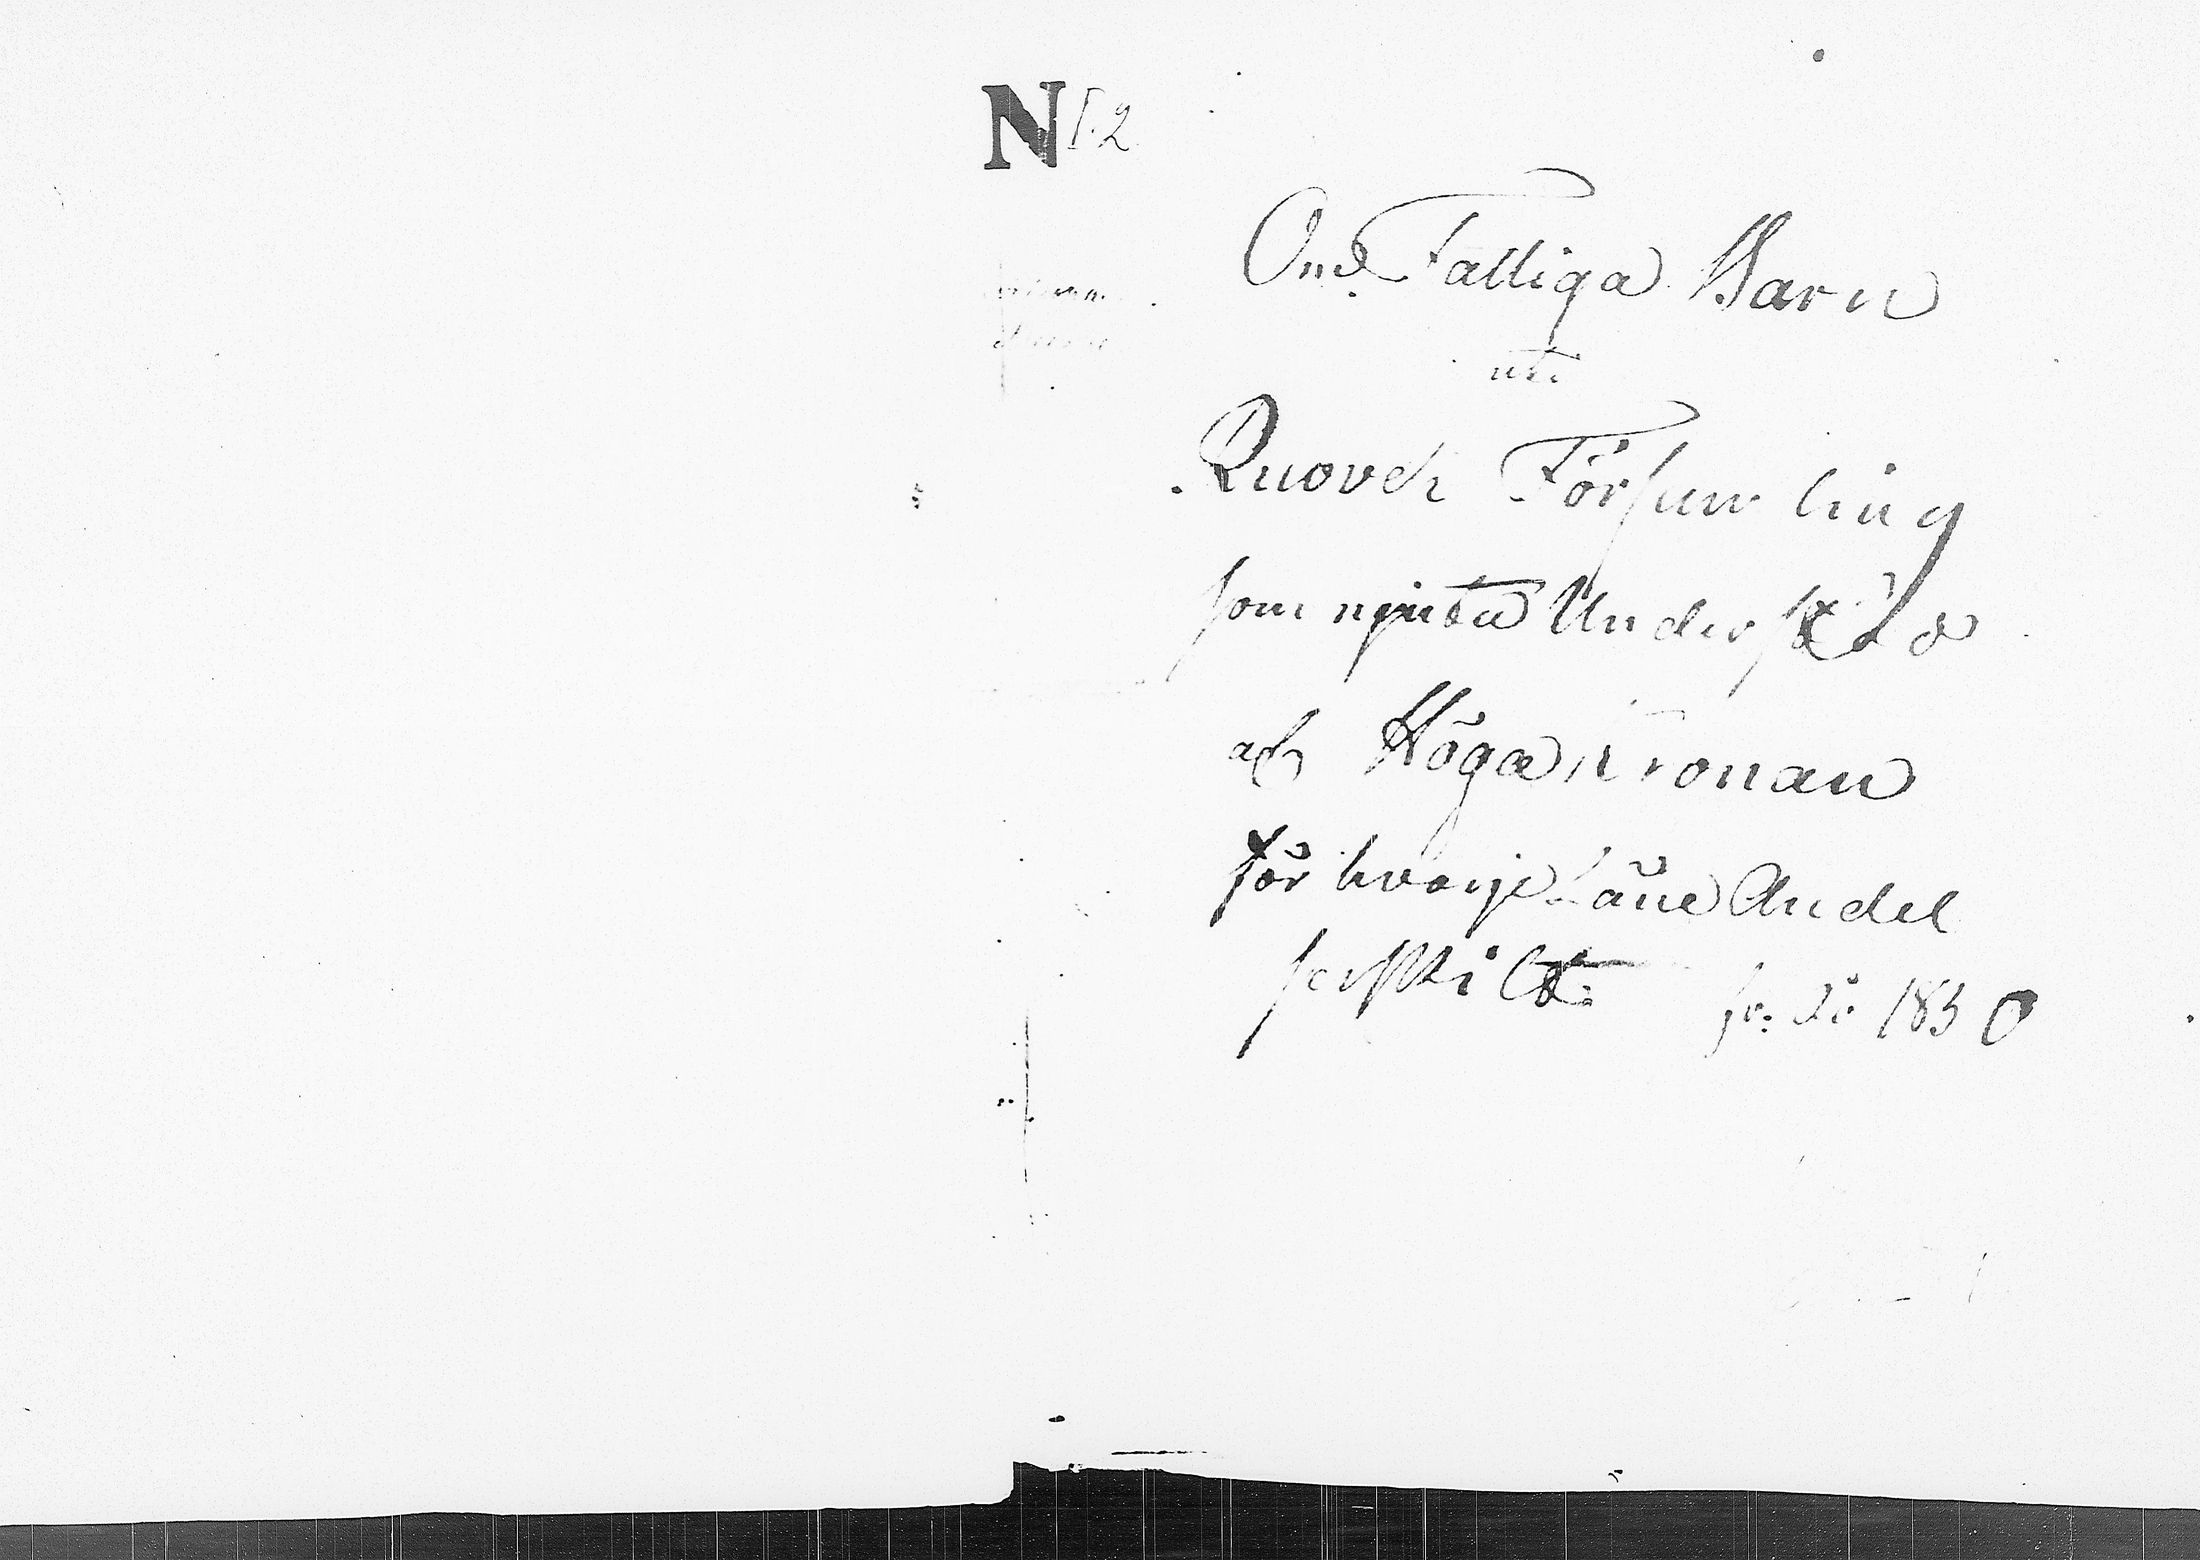 N I.2
Om Fattiga Barn
uti
Ruovesi Församling
som njuta Understöd
af Höga Kronan
för hvarje Låne Andel
serskilt för År 1830